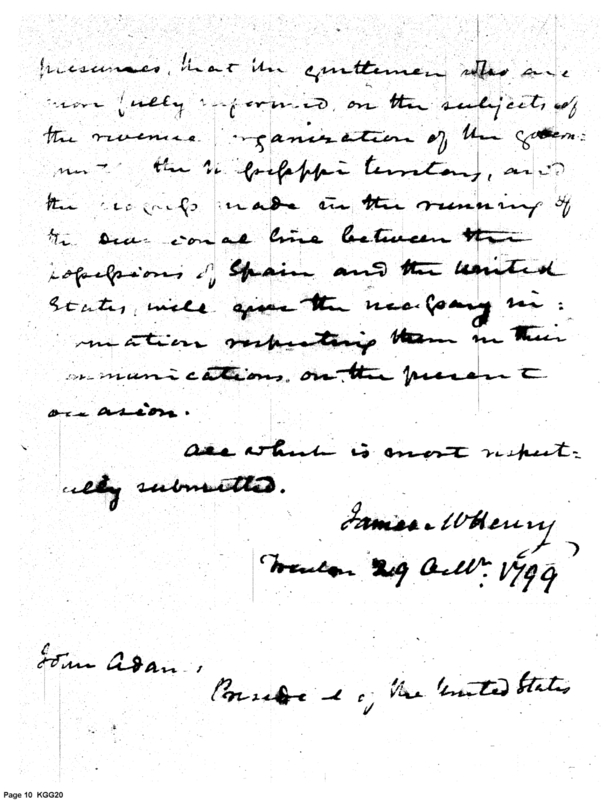 presumes, that the gentlemen who are
more fully informed, on the subjects of
the revenue organization of the govern=
ment the Missisippi territory, and
the progress made in the running of
the divisional line between the
possessions of Spain and the United
States, will give the necessary in=
formation respecting them in their
communications, on the present
occasion.
All which is most respect=
fully submitted.
James McHenry
Trenton 29 Octbr. 1799
John Adams
President of the United States
Page 10 KGG20